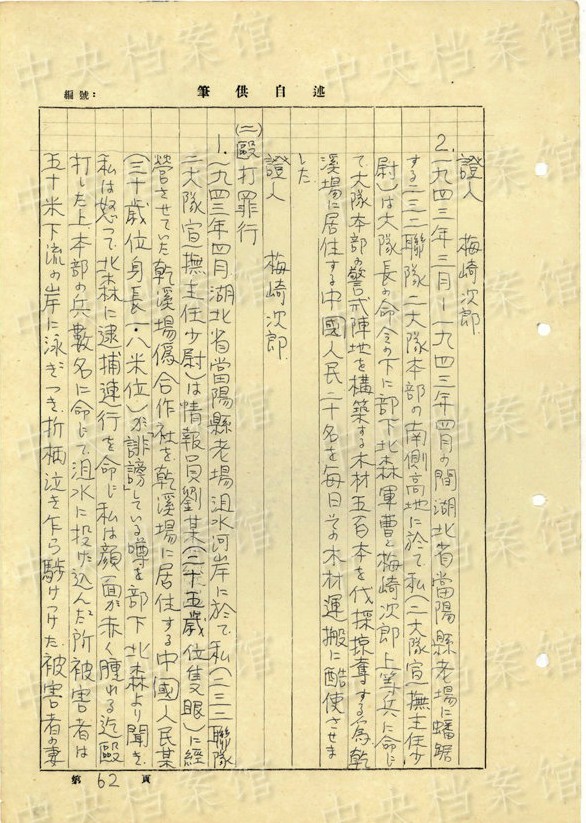 編號：
筆供自述
證人　梅崎次郎
2. 一九四三年三月－一九四三年四月の間湖北省當陽縣老場に蟠踞
する二三二聯隊二大隊本部の南側高地に於て私(二大隊宣撫主任少
尉)は大隊長の命令の下に部下北森軍曹と梅崎次郎上等兵に命じ
て大隊本部の警戒陣地を構築する木材五百本を伐採掠奪する為乾
溪場に居住する中國人民二十名を毎日その木材運搬に酷使させま
した
證人　梅崎次郎
(二)毆打罪行
1. 一九四三年四月湖北省當陽縣老場沮水河岸に於て私(二三二聯隊
二大隊宣撫主任少尉)は情報員劉某(二十五歲位隻眼)に經
營させていた乾溪場偽合作社を乾溪場に居住する中國人民某
(三十歲位身長一・八米位)が「誹謗」している噂を部下北森より聞き
私は怒って北森に逮捕連行を命じ私は顔面が赤く腫れる迄毆
打した上本部の兵數名に命じて沮水に投げ込んだ所被害者は
五十米下流の岸に泳ぎつき折柄泣き乍ら駈けつけた被害者の妻
第 62 頁
中央档案馆
中央档案馆
中央档案馆
中央档案馆